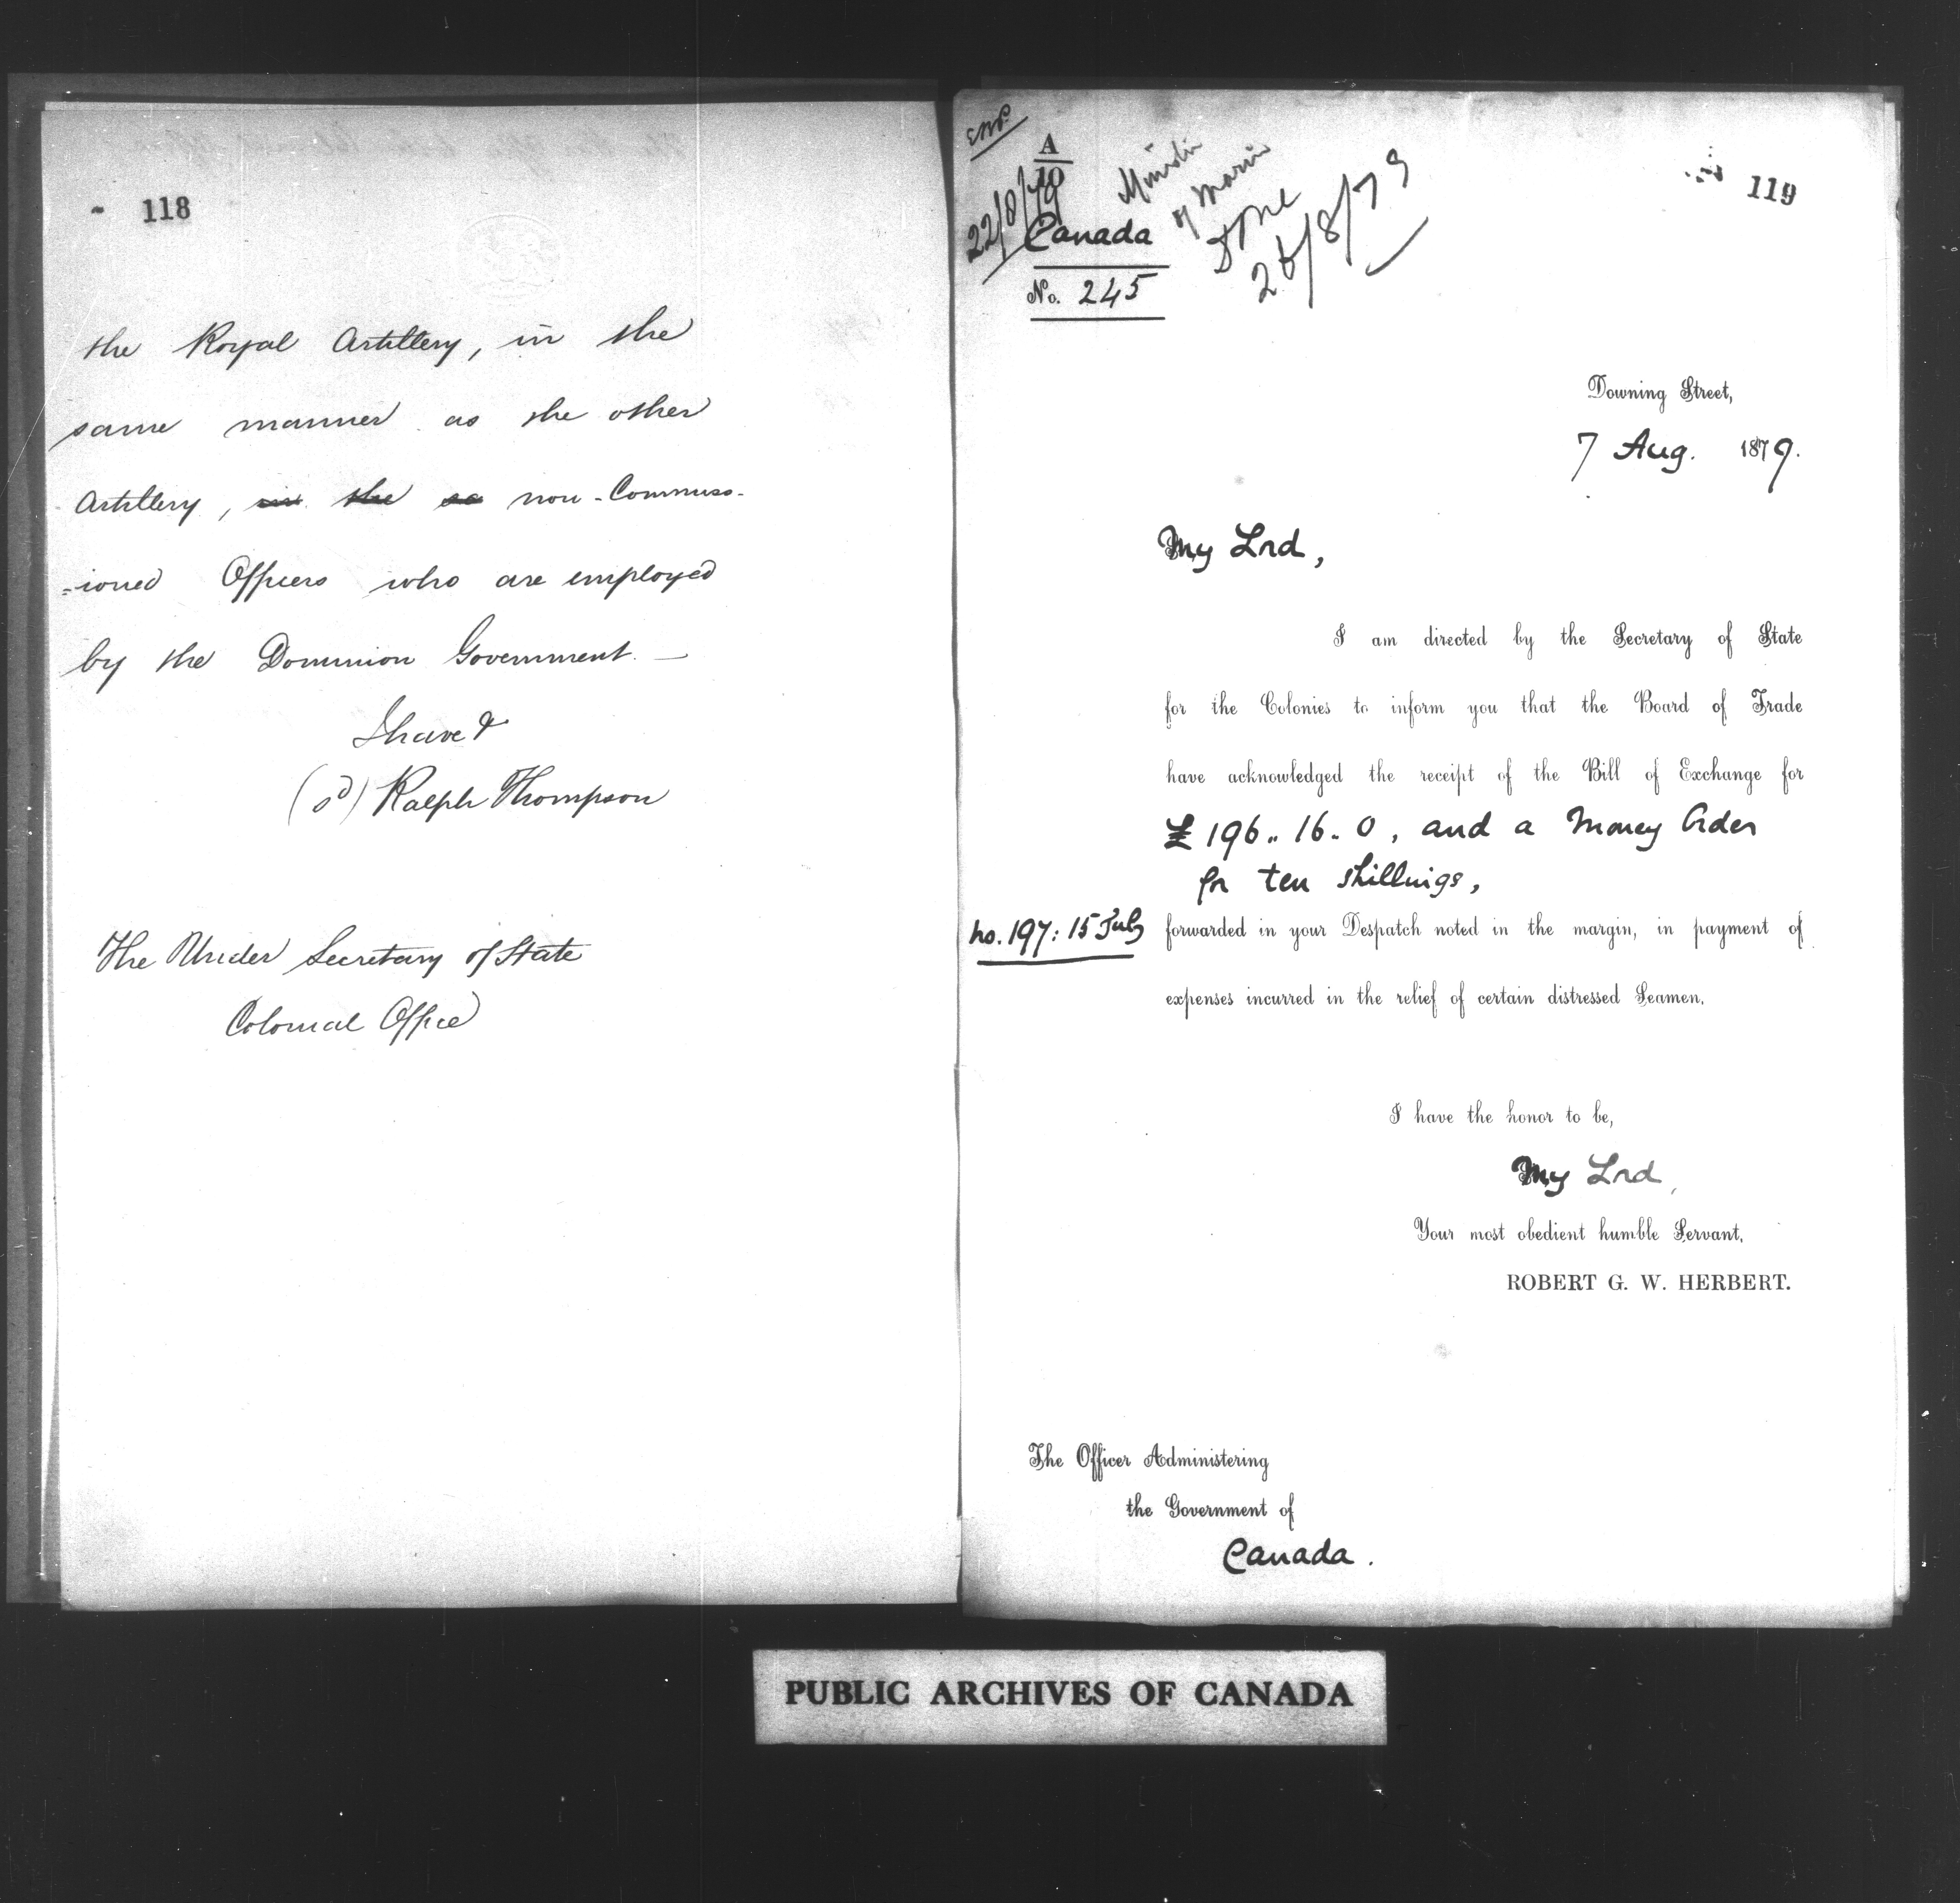 118
the Royal Artillery, in the
same manner as the other
Artillery, in the sa non-Commiss-
=ioned Officers who are employed
by the Dominion Government. —
I have &
(sd) Ralph Thompson
The Under Secretary of State
Colonial Office
119
A
10
22/8/79
Minister
of Marine
Done
26/8/79
Canada
No. 245
Downing Street,
7 Aug. 1879.
My Lord,
I am directed by the Secretary of State
for the Colonies to inform you that the Board of Trade
have acknowledged the receipt of the Bill of Exchange for
£196.. 16. 0, and a Money Order
for ten shillings,
no. 197: 15 July
forwarded in your Despatch noted in the margin, in payment of
expenses incurred in the relief of certain distressed Seamen.
I have the honor to be,
My Lord,
Your most obedient humble Servant,
ROBERT G. W. HERBERT.
The Officer Administering
the Government of
Canada.
PUBLIC ARCHIVES OF CANADA